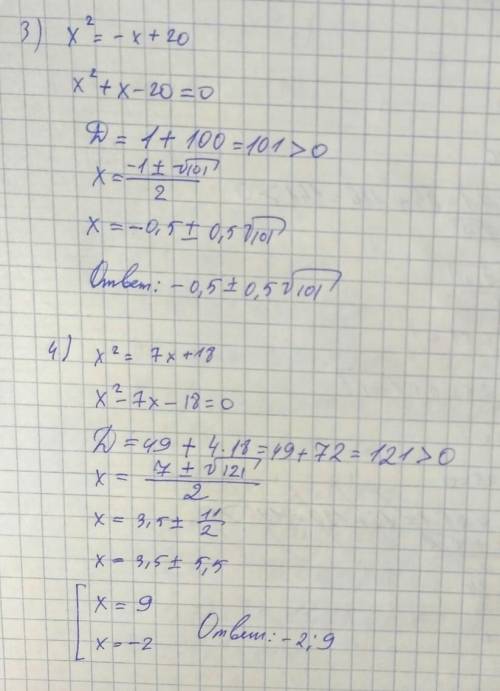 3) x² = -x + 20
x² + x - 20 = 0
D = 1 + 100 = 101 > 0
x = (-1 ± √101)/2
x = -0,5 ± 0,5√101
Ответ: -0,5 ± 0,5√101
4) x² = 7x + 18
x² - 7x - 18 = 0
D = 49 + 4·18 = 49 + 72 = 121 > 0
x = (7 ± √121)/2
x = 3,5 ± 11/2
x = 3,5 ± 5,5
[ x = 9
x = -2 Ответ: -2; 9